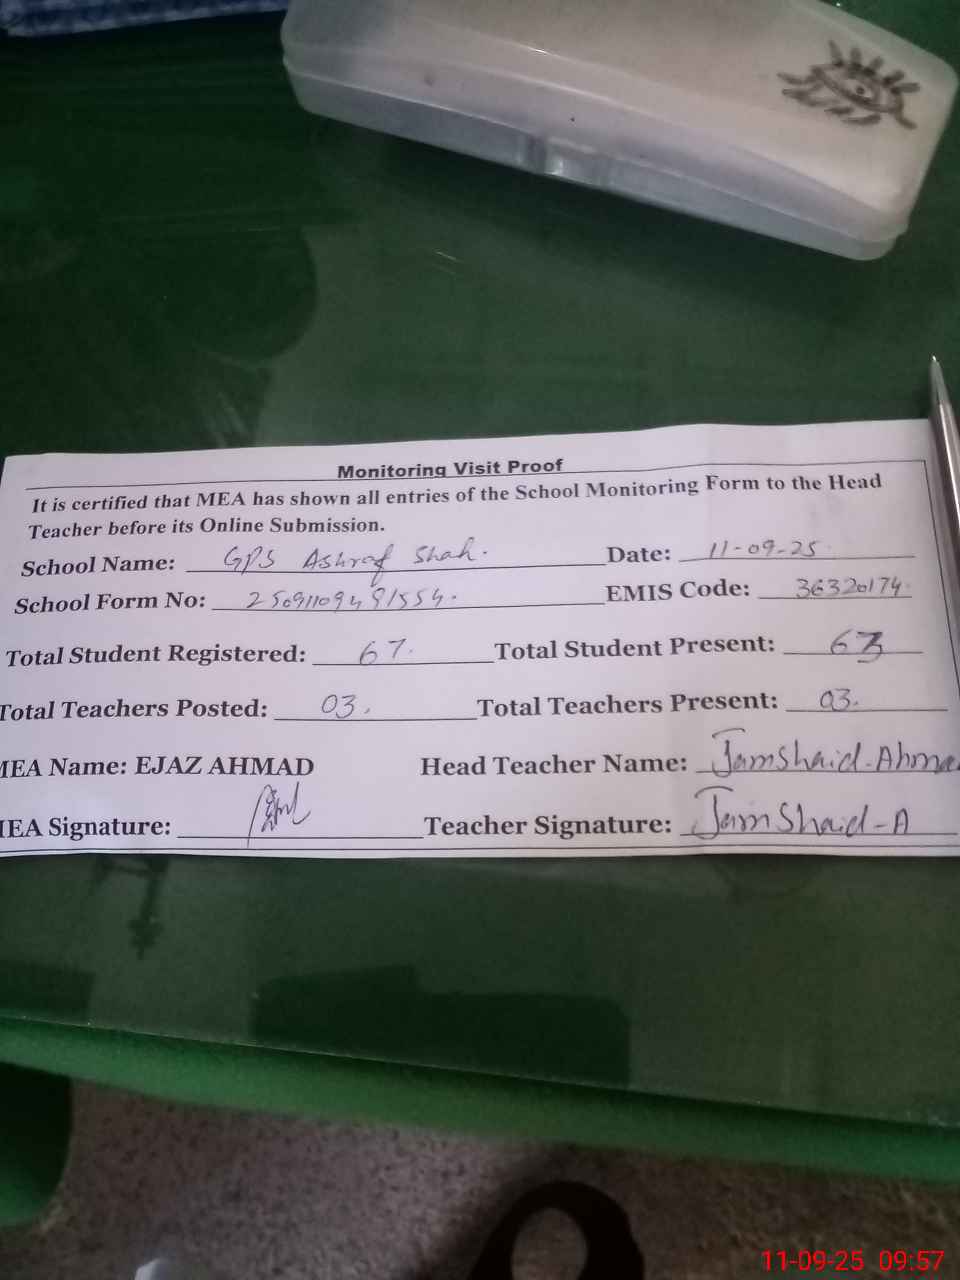 Monitoring Visit Proof
It is certified that MEA has shown all entries of the School Monitoring Form to the Head
Teacher before its Online Submission.
School Name: GPS Ashraf Shah. Date: 11-09-25.
School Form No: EMIS Code: 36320174.
Total Student Registered: 67. Total Student Present: 63
Total Teachers Posted: 03. Total Teachers Present: 03.
MEA Name: EJAZ AHMAD Head Teacher Name: Jamshaid-Ahma
MEA Signature: Teacher Signature: Jamshaid-A
11-09-25 09:57